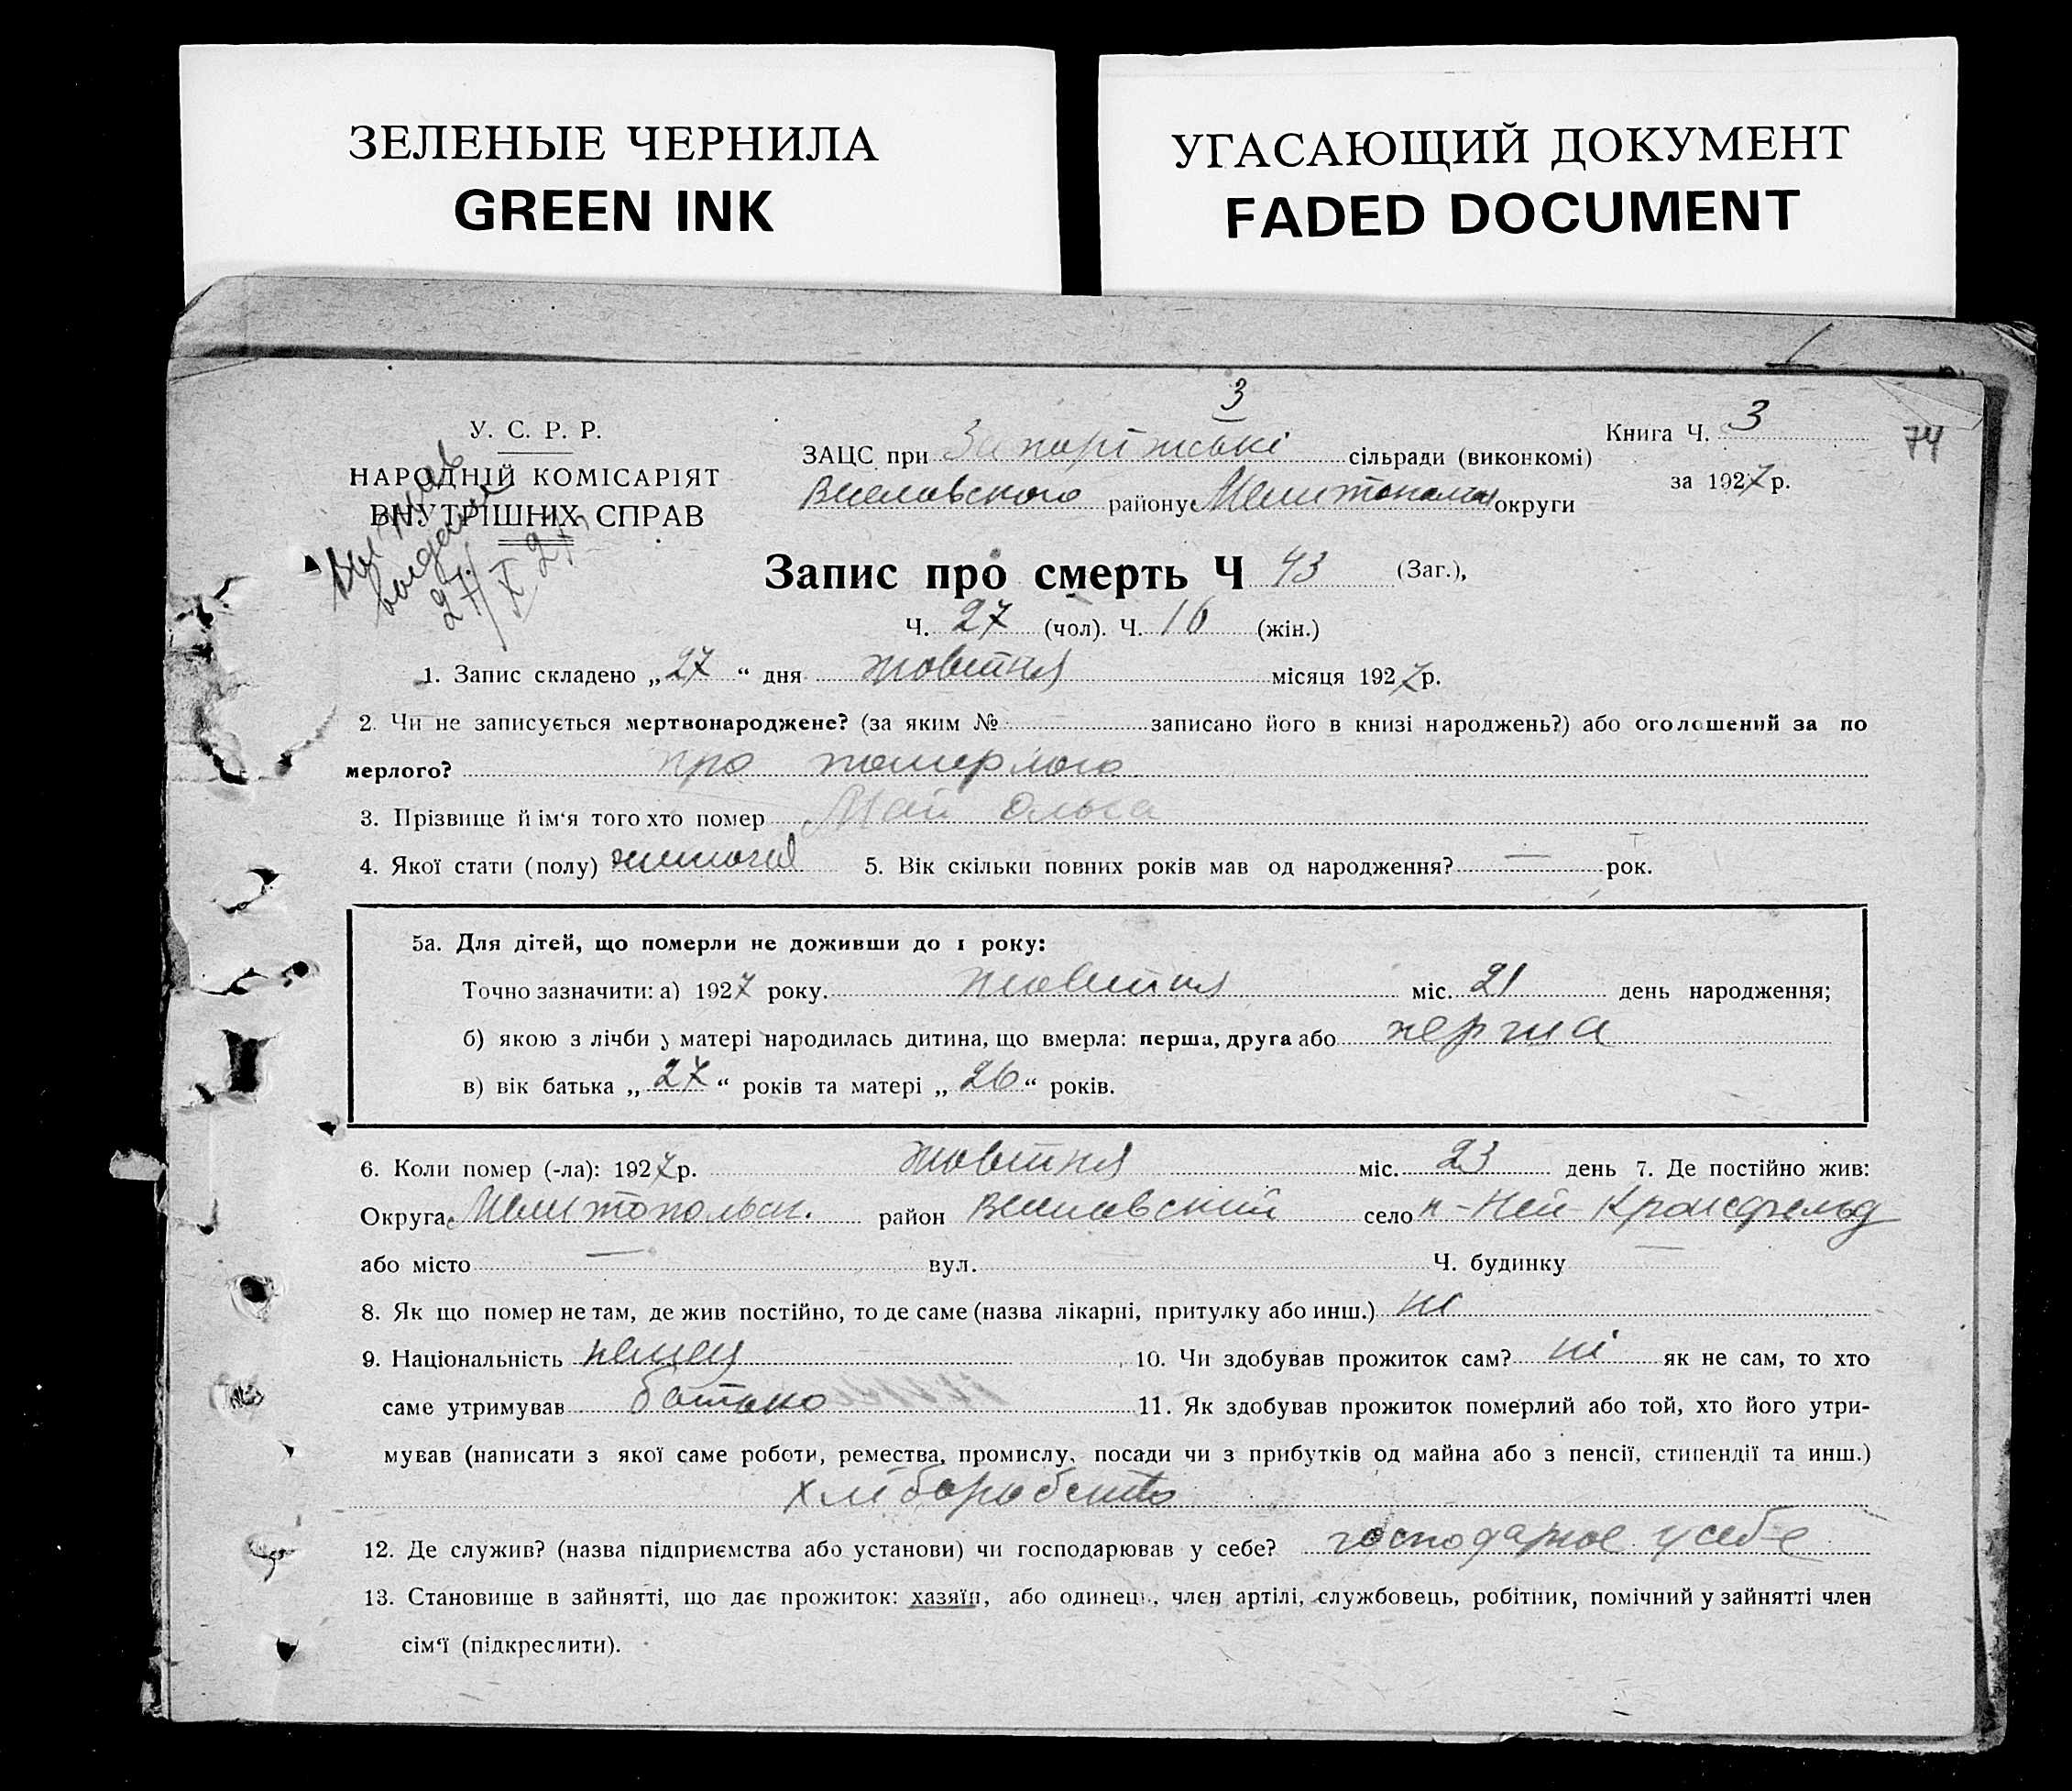 ЗЕЛЕНЫЕ ЧЕРНИЛА
GREEN INK
УГАСАЮЩИЙ ДОКУМЕНТ
FADED DOCUMENT
3
74
У. С. Р. Р.
НАРОДНІЙ КОМІСАРІЯТ
ВНУТРІШНІХ СПРАВ
27/X 27
ЗАЦС при Запоріжські сільради (виконкомі)
Веселовского району Мелитопольск округи
Книга Ч. 3
за 1927 р.
Запис про смерть Ч 43 (Заг.),
Ч. 27 (чол). Ч. 16 (жін.)
1. Запис складено „27“ дня жовтня місяця 1927 р.
2. Чи не записується мертвонароджене? (за яким № записано його в книзі народжень?) або оголошений за по
мерлого? про померлого
3. Прізвище й ім‘я того хто помер Май Ольга
4. Якої стати (полу) жиночоі 5. Вік скільки повних років мав од народження? — рок.
5а. Для дітей, що померли не доживши до 1 року:
Точно зазначити: а) 1927 року. жовтня міс. 21 день народження;
б) якою з лічби у матері народилась дитина, що вмерла: перша, друга або перша
в) вік батька „27“ років та матері „26“ років.
6. Коли помер (-ла): 1927 р. жовтня міс. 23 день 7. Де постійно жив:
Округа Мелитопольск. район Веселовский село к-Ней-Кронсфельд
або місто — вул. Ч. будинку —
8. Як що помер не там, де жив постійно, то де саме (назва лікарні, притулку або инш.) ні
9. Національність немец 10. Чи здобував прожиток сам? ні як не сам, то хто
саме утримував батько 11. Як здобував прожиток померлий або той, хто його утри-
мував (написати з якої саме роботи, ремества, промислу, посади чи з прибутків од майна або з пенсії, стипендії та инш.)
хліборобство
12. Де служив? (назва підприємства або установи) чи господарював у себе? господарює у себе
13. Становище в зайнятті, що дає прожиток: хазяїн, або одинець, член артілі, службовець, робітник, помічний у зайнятті член
сім‘ї (підкреслити).